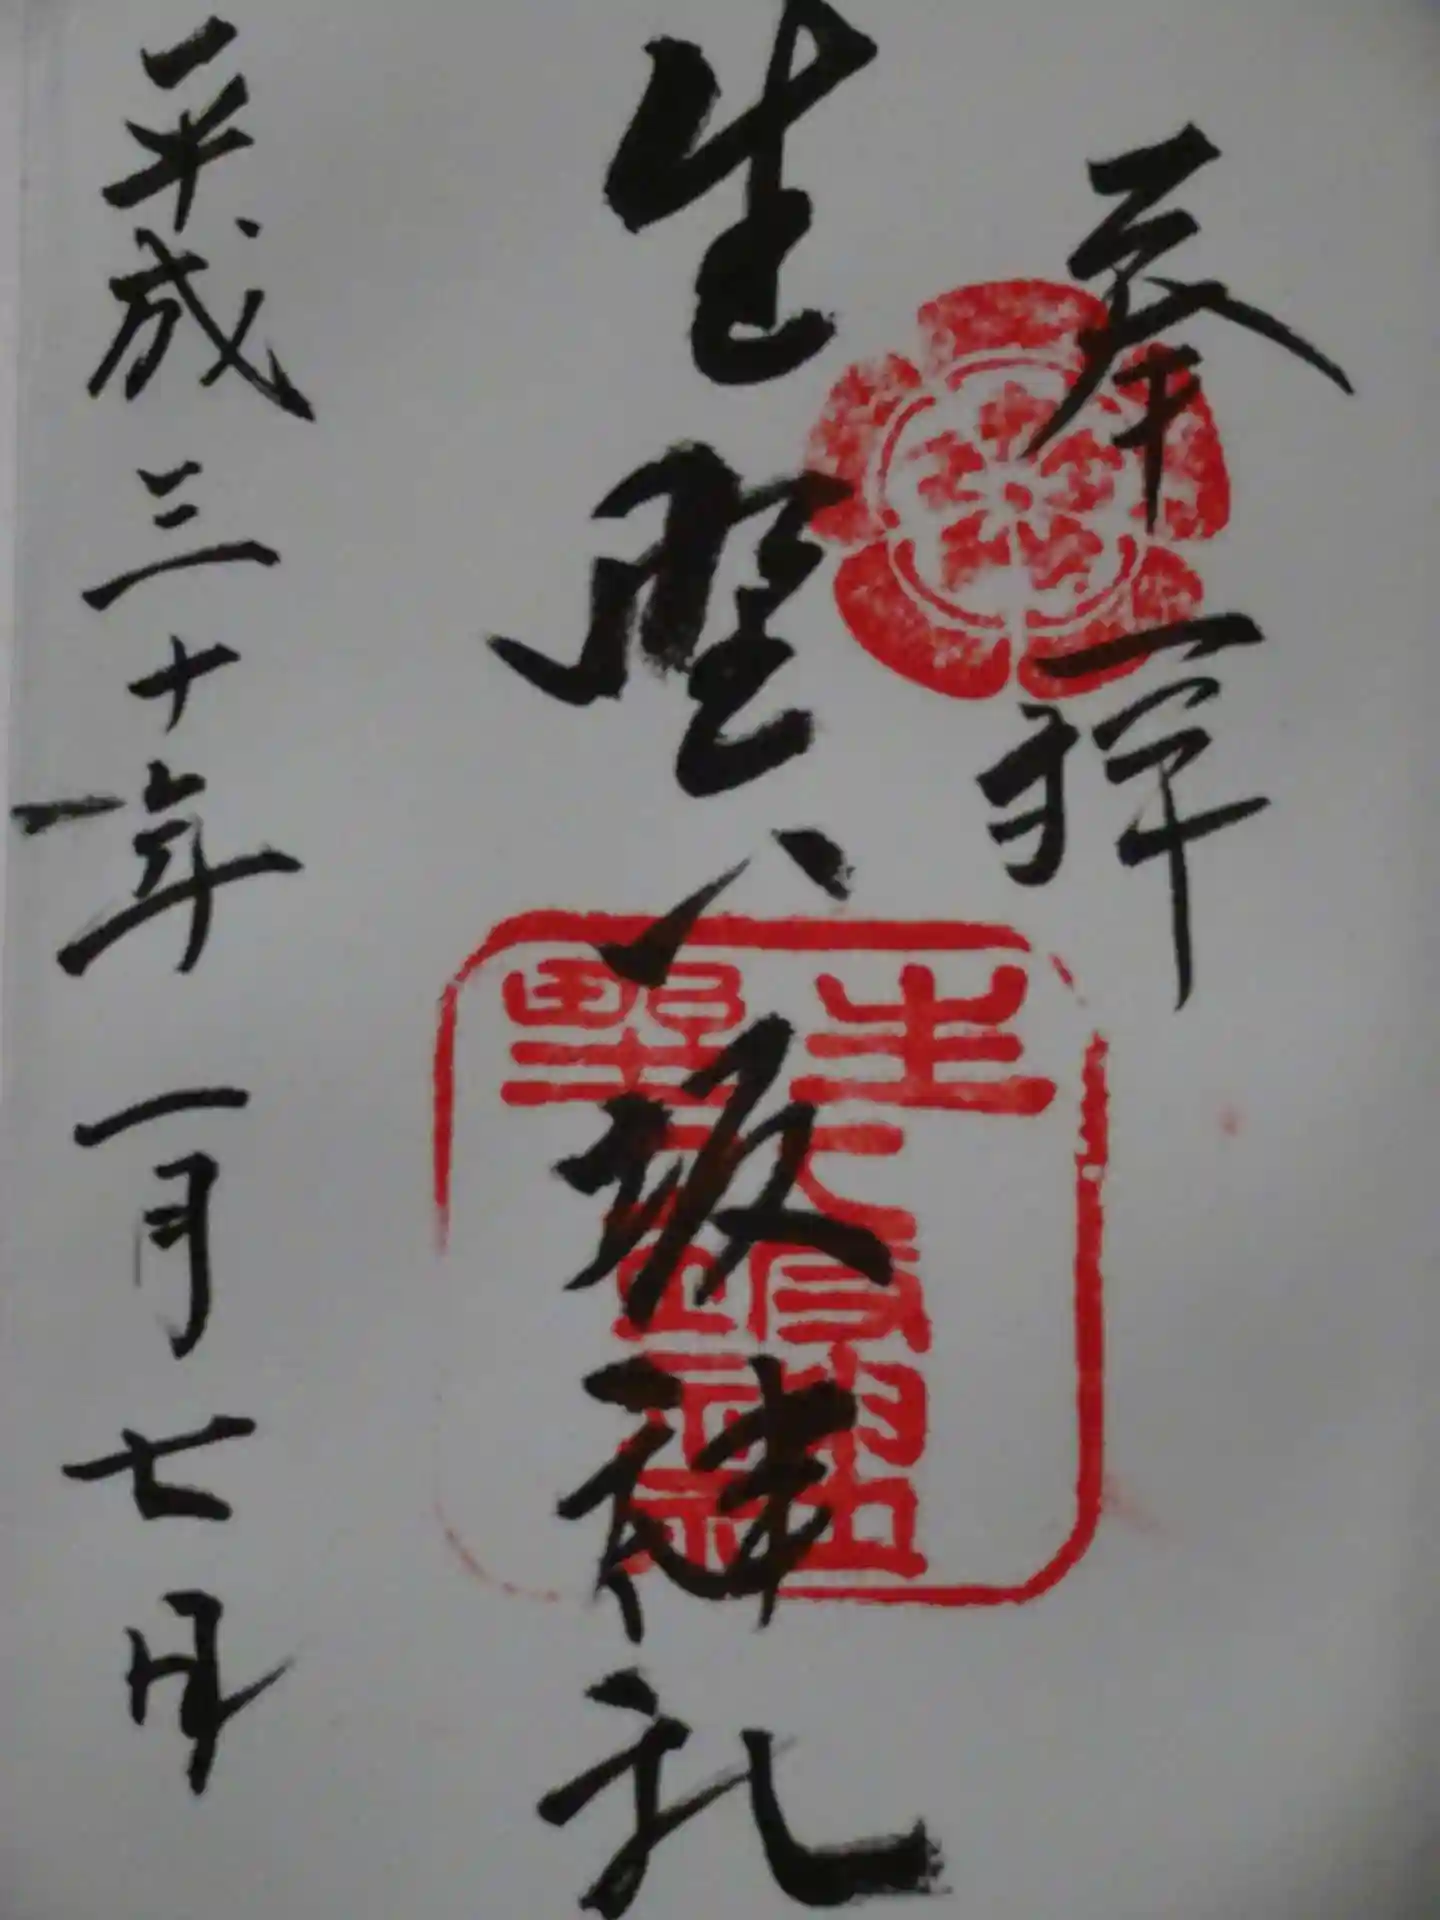 奉拝
生野八坂神社
生野
八坂
神社
平成三十年一月七日